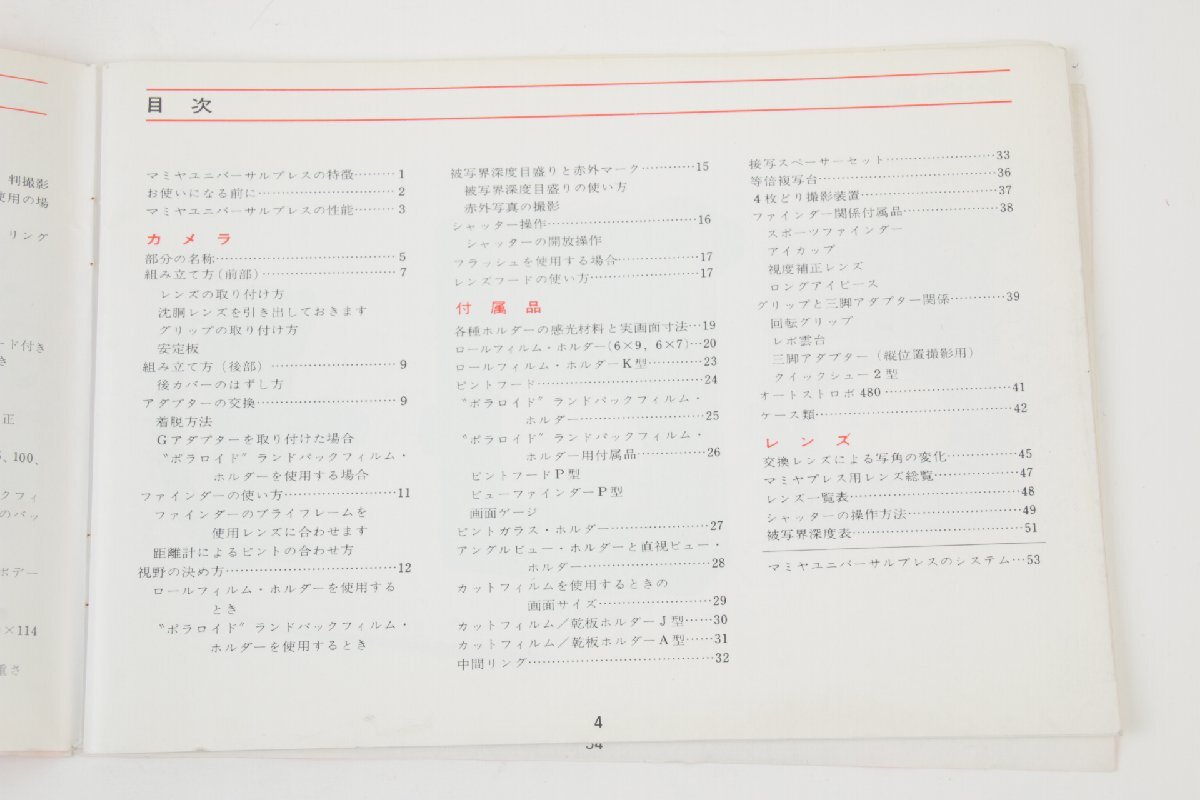 判撮影
使用の場
リング
ード付き
き
正
100、
クフィ
のバッ
ボデー
×114
重さ
目 次
マミヤユニバーサルプレスの特徴………1
お使いになる前に………2
マミヤユニバーサルプレスの性能………3
カメラ
部分の名称………5
組み立て方(前部)………7
レンズの取り付け方
沈胴レンズを引き出しておきます
グリップの取り付け方
安定板
組み立て方(後部)………9
後カバーのはずし方
アダプターの交換………9
着脱方法
Gアダプターを取り付けた場合
"ポラロイド"ランドパックフィルム・
ホルダーを使用する場合
ファインダーの使い方………11
ファインダーのブライフレームを
使用レンズに合わせます
距離計によるピントの合わせ方
視野の決め方………12
ロールフィルム・ホルダーを使用する
とき
"ポラロイド"ランドパックフィルム・
ホルダーを使用するとき
被写界深度目盛りと赤外マーク………15
被写界深度目盛りの使い方
赤外写真の撮影
シャッター操作………16
シャッターの開放操作
フラッシュを使用する場合………17
レンズフードの使い方………17
付属品
各種ホルダーの感光材料と実画面寸法…19
ロールフィルム・ホルダー(6×9、6×7)…20
ロールフィルム・ホルダーK型………23
ピントフード………24
"ポラロイド"ランドパックフィルム・
ホルダー………25
"ポラロイド"ランドパックフィルム・
ホルダー用付属品………26
ピントフードP型
ビューファインダーP型
画面ゲージ
ピントガラス・ホルダー………27
アングルビュー・ホルダーと直視ビュー・
ホルダー………28
カットフィルムを使用するときの
画面サイズ………29
カットフィルム/乾板ホルダーJ型……30
カットフィルム/乾板ホルダーA型……31
中間リング………32
接写スペーサーセット………33
等倍複写台………36
4枚どり撮影装置………37
ファインダー関係付属品………38
スポーツファインダー
アイカップ
視度補正レンズ
ロングアイピース
グリップと三脚アダプター関係………39
回転グリップ
レボ雲台
三脚アダプター(縦位置撮影用)
クイックシュー2型
オートストロボ480………41
ケース類………42
レンズ
交換レンズによる写角の変化………45
マミヤプレス用レンズ総覧………47
レンズ一覧表………48
シャッターの操作方法………49
被写界深度表………51
マミヤユニバーサルプレスのシステム…53
4
54